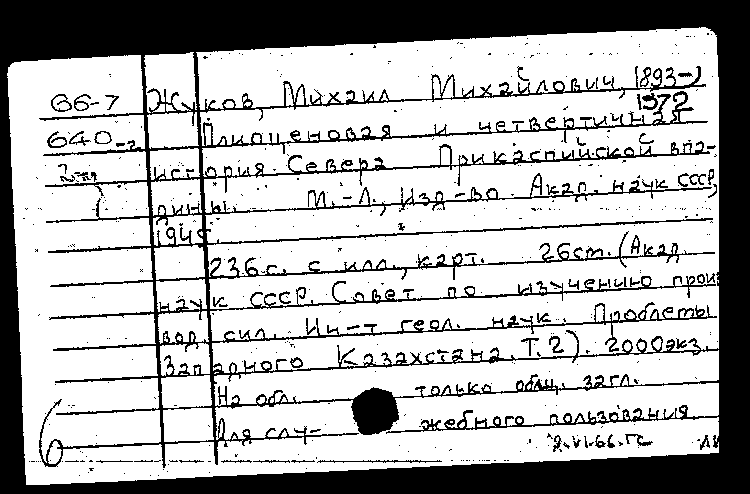 66-7 Жуков, Михаил Михайлович, 1893-
1972
640-2 Плиоценовая и четвертичная
история Севера Прикаспийской впа-
дины. М.-Л., Изд-во Акад. наук СССР,
1945.
236с. с илл., карт. 26см. (Акад.
наук СССР. Совет по изучению произ
вод. сил. Ин-т геол. наук. Проблемы
Западного Казахстана. Т. 2). 2000экз.
На обл. только общ. загл.
Для слу- жебного пользования
6